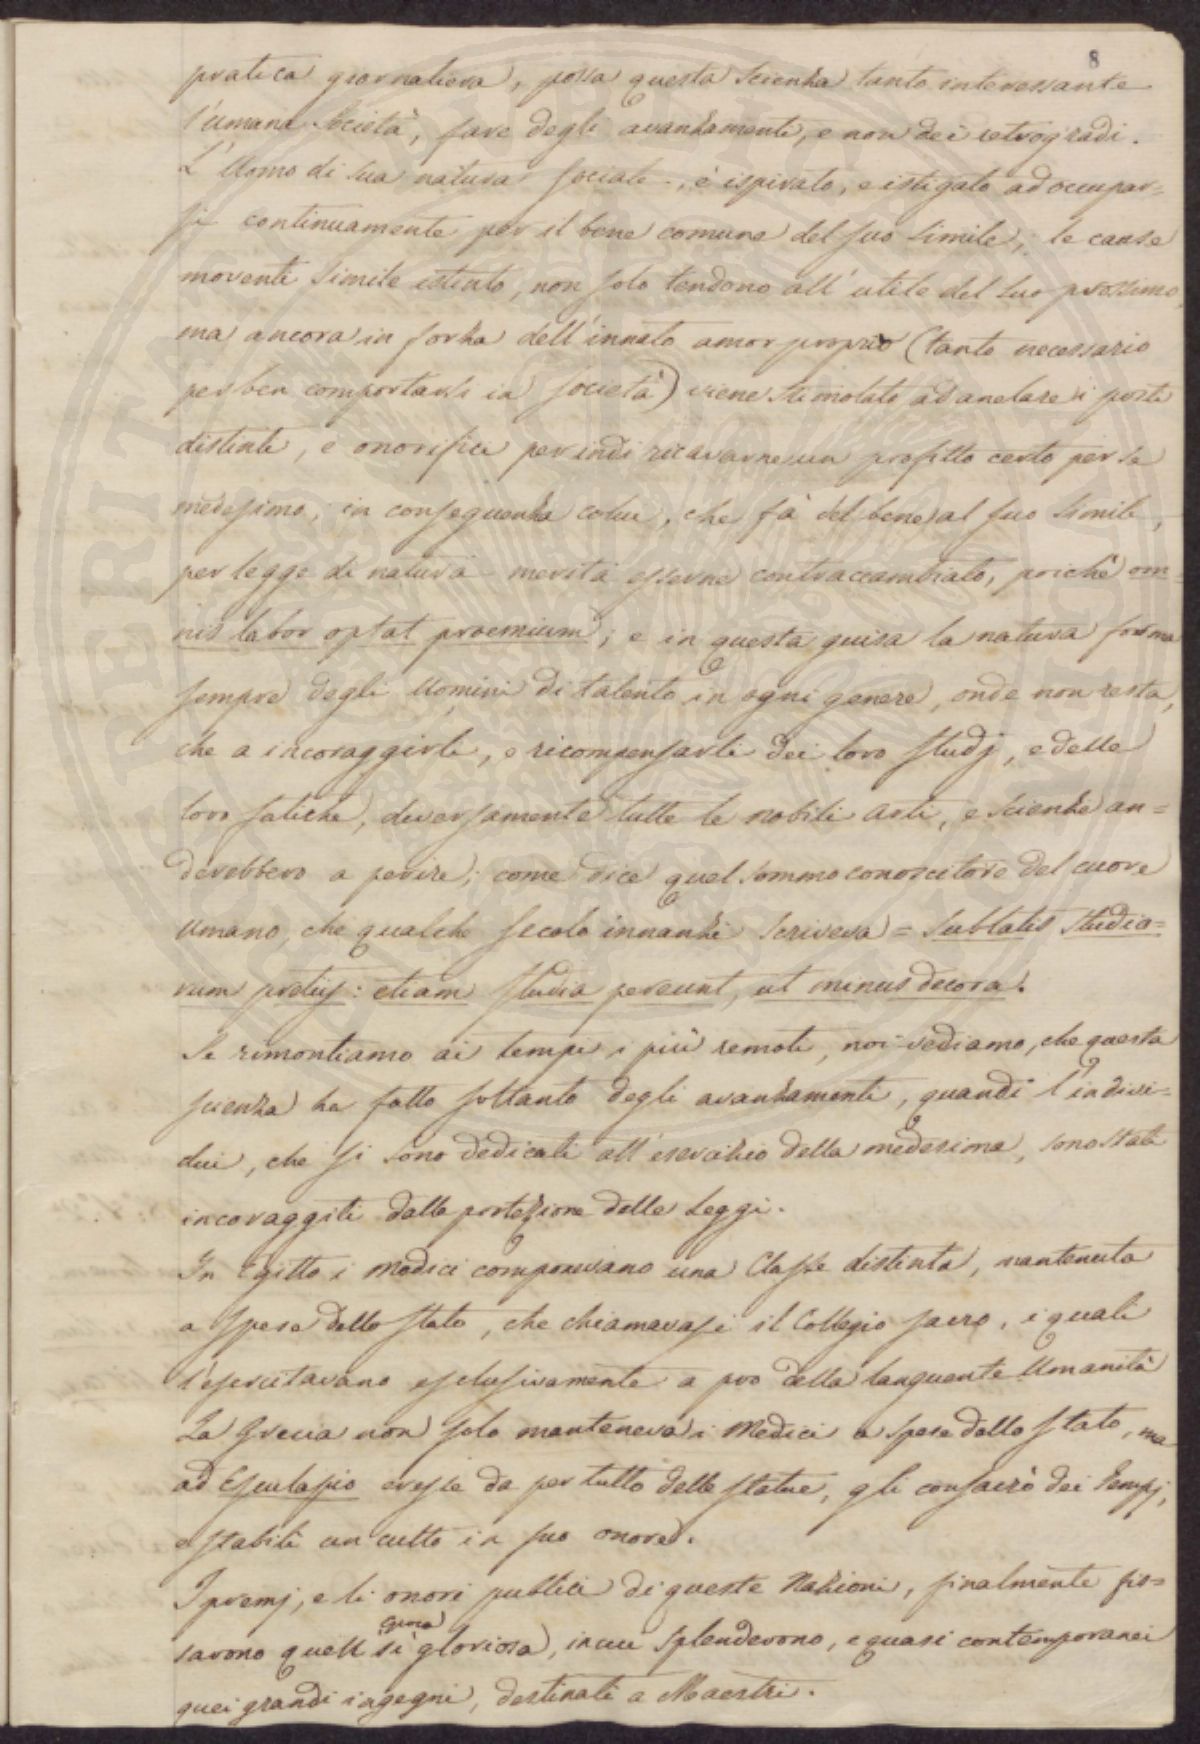 8
pratica giornaliera, possa questa scienza tanto interessante
l'umana Società, fare degli avanzamenti, e non dei retrogradi.
L'Uomo di sua natura sociale, è ispirato, e istigato ad occupar=
si continuamente per il bene comune del suo simile, le cause
moventi simile istinto, non solo tendono all'utile del suo prossimo,
ma ancora in forza dell'innato amor proprio (tanto necessario
per ben comportarsi in società) viene stimolato ad anelare i posti
distinti, e onorifici per indi ricavarne un profitto certo per se
medesimo, in conseguenza colui, che fà del bene al suo simile,
per legge di natura merita esserne contraccambiato, poichè om=
nis labor optat praemium; e in questa guisa la natura forma
sempre degli Uomini di talento in ogni genere, onde non resta,
che a incoraggirli, e ricompensarli dei loro studj, e delle
loro fatiche, diversamente tutte le nobili arti, e scienze an=
derebbero a perire; come dice quel sommo conoscitore del cuore
Umano, che qualche secolo innanzi scriveva = Sublatis studio=
rum pretiis: etiam studia pereunt, ut minus decora.
Se rimontiamo ai tempi i più remoti, noi vediamo, che questa
scienza ha fatto soltanto degli avanzamenti, quandi l'indivi=
dui, che si sono dedicati all'esercizio della medesima, sono stati
incoraggiti dalla portezione delle Leggi.
In Egitto i Medici componevano una Classe distinta, mantenuta
a spese dello stato, che chiamavasi il Collegio sacro, i quali
l'esercitavano esclusivamente a pro della languente Umanità
La Grecia non solo manteneva i Medici a spese dello stato, ma
ad Esculapio eresse da per tutto delle statue, gli consacrò dei Tempj,
e stabilì un culto in suo onore.
I premj, e li onori publici di queste Nazioni, finalmente fis=
sarono quell' epoca sì gloriosa, in cui splenderono, e quasi contemporanei
quei grandi ingegni, destinati a Maestri.